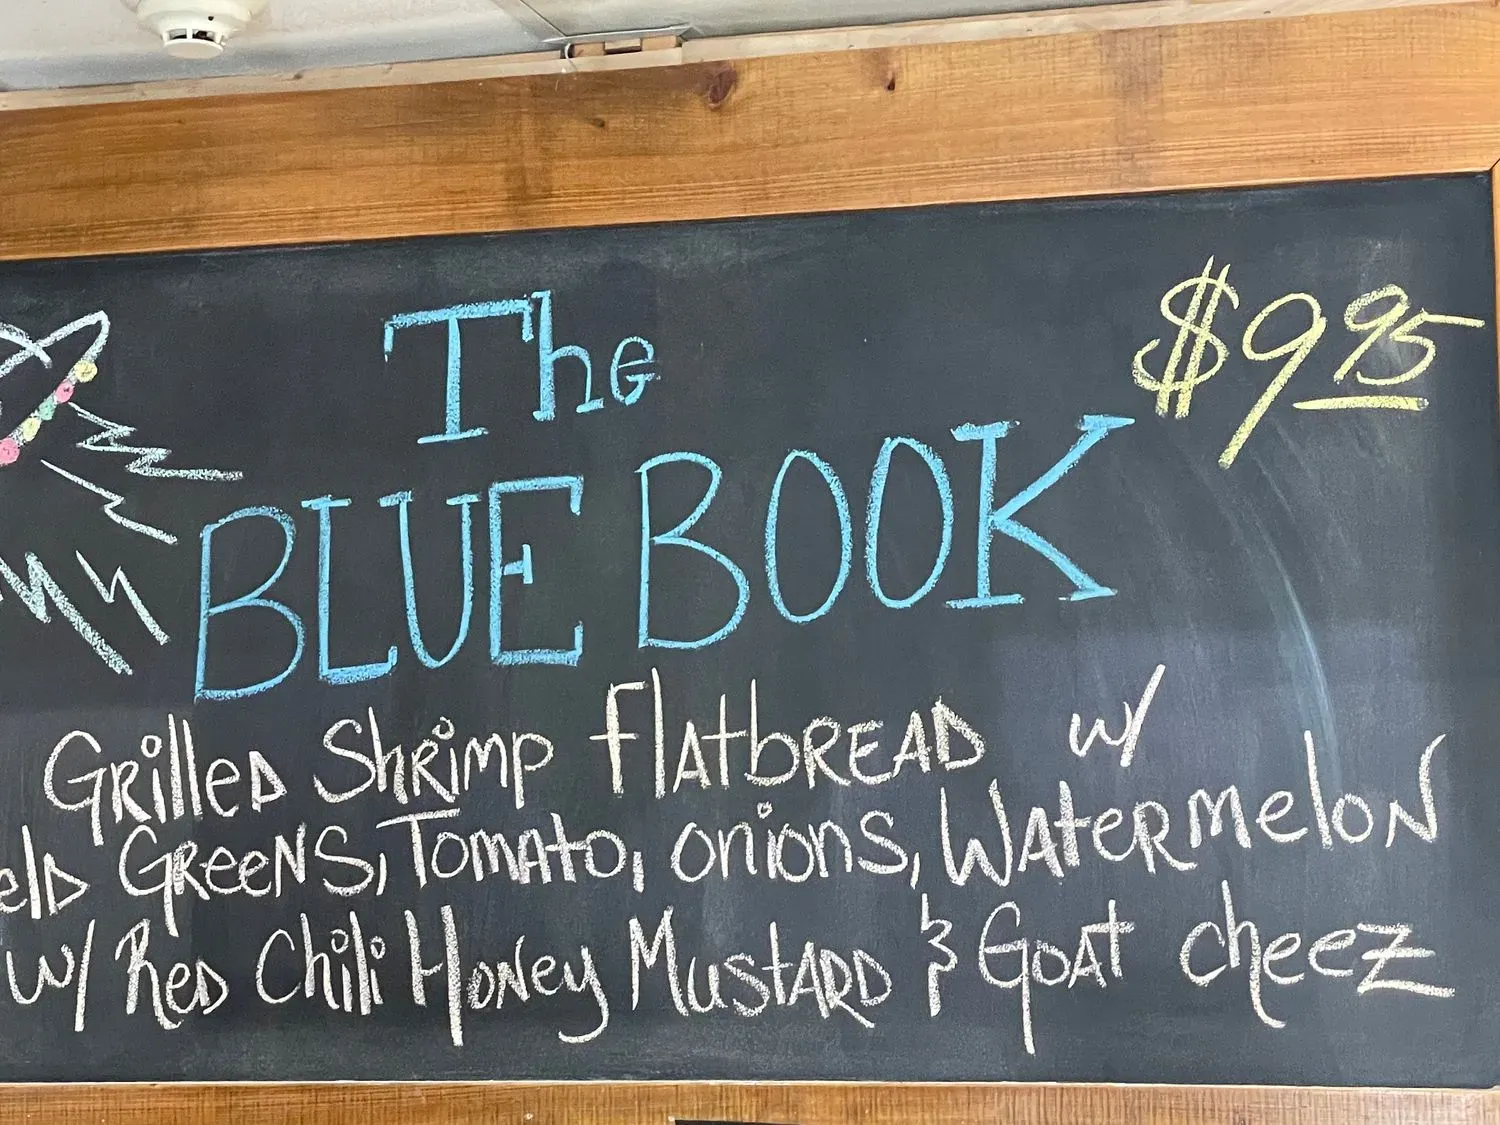 The
$9.95
BLUE BOOK
Grilled Shrimp FlatbREAD w/
eld GReeNS, Tomato, onions, Watermelon
w/ Red Chili Honey Mustard & Goat cheez